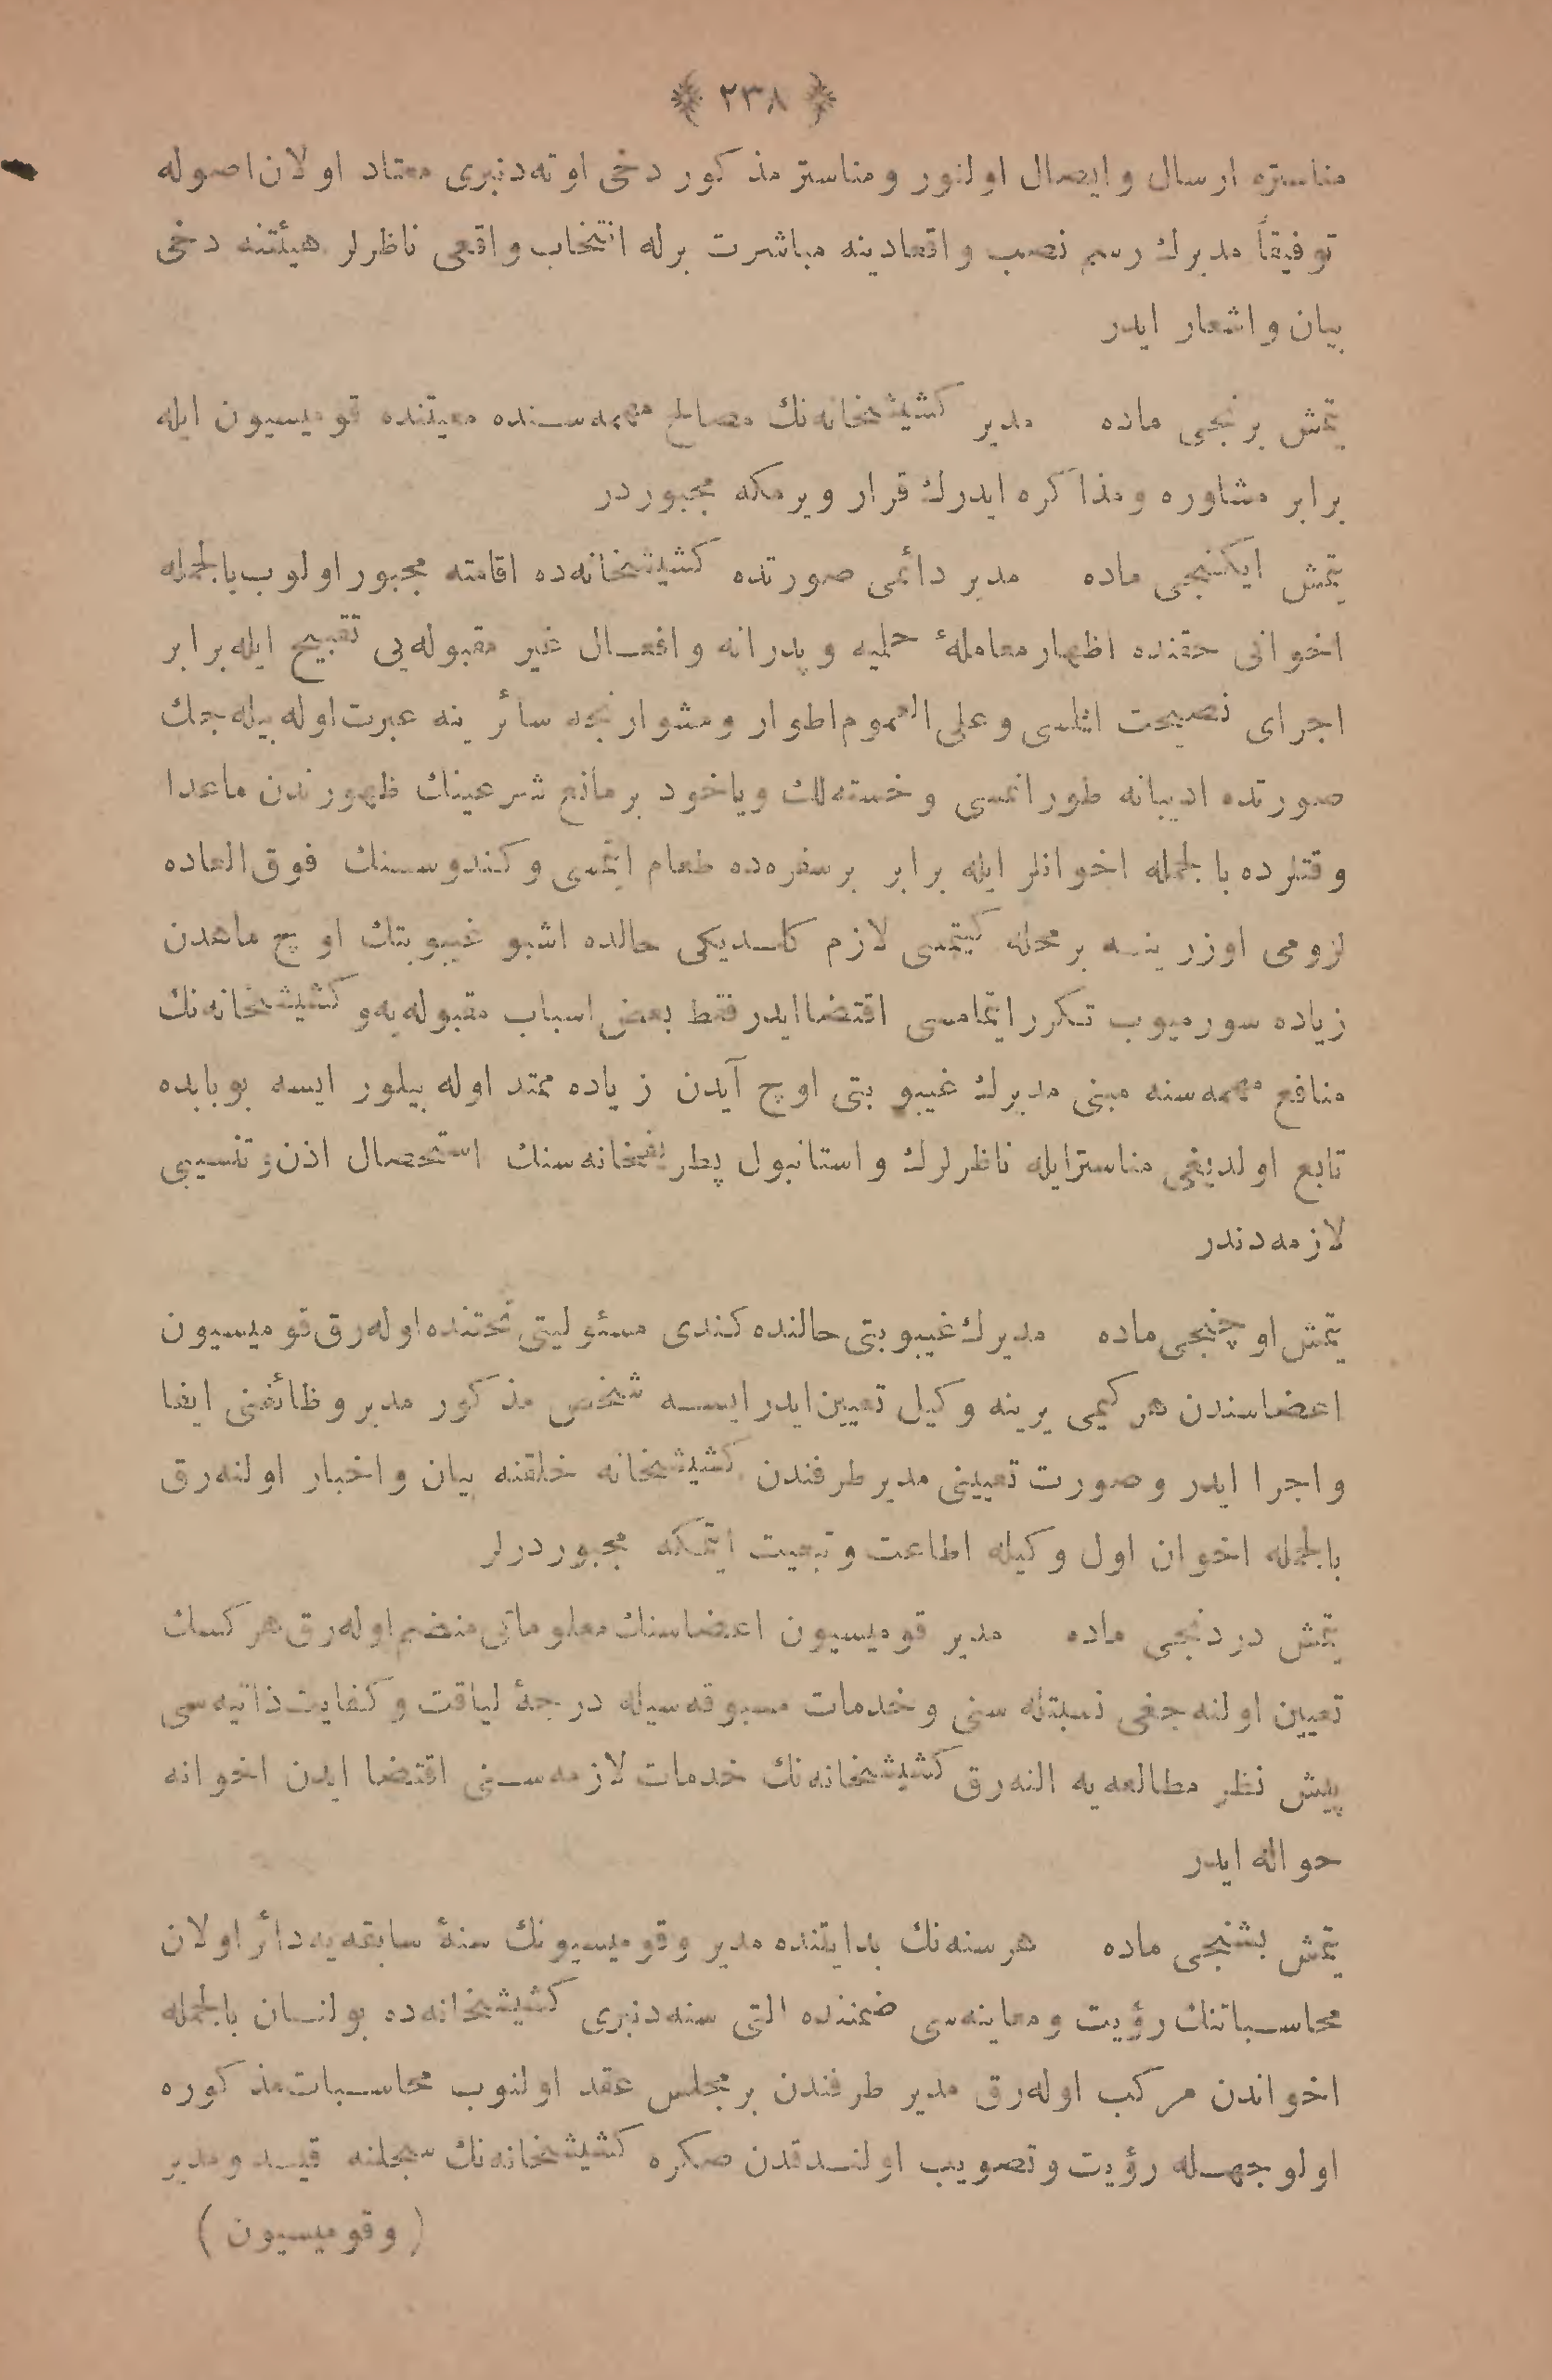 ﴿ ٢٣٨ ﴾
مناستره ارسال وايصال اولنور ومناستر مذكور دخى اوته‌دنبرى معتاد اولان اصوله
توفيقاً مديرك رسم نصب واقعادينه مباشرت برله انتخاب واقعى ناظرلر هيئتنه دخى
بيان واشعار ايدر
يتمش برنجى ماده مدير كشيشخانه‌نك مصالح مهمه‌سنده معيتنده قوميسيون ايله
برابر مشاوره ومذاكره ايدرك قرار ويرمكه مجبوردر
يتمش ايكنجى ماده مدير دائمى صورتده كشيشخانه‌ده اقامته مجبور اولوب بالجمله
اخوانى حقنده اظهار معاملۀ حليه وپدرانه وافعال غير مقبوله‌يى تقبيح ايله برابر
اجراى نصيحت ايتلمسى وعلى العموم اطوار ومشوارنجه سائرينه عبرت اوله‌بيله‌جك
صورتده اديبانه طورانمسى وخسته‌لك وياخود بر مانع شرعينك ظهورندن ماعدا
وقتلرده بالجمله اخوانلر ايله برابر بر سفره‌ده طعام ايتمسى وكندوسنك فوق‌العاده
لزومى اوزرينه بر محله كيتمسى لازم كلديكى حالده اشبو غيبوبتك اوچ ماهدن
زياده سورميوب تكرر ايتمامسى اقتضا ايدر فقط بعض اسباب مقبوله‌يه و كشيشخانه‌نك
منافع مهمه‌سنه مبنى مديرك غيبوبتى اوچ آيدن زياده ممتد اوله‌بيلور ايسه بوبابده
تابع اولديغى مناستر ايله ناظرلرك واستانبول پطريقخانه‌سنك استحصال اذن وتنسيبى
لازمه‌دندر
يتمش اوچنجى ماده مديرك غيبوبتى حالنده كندى مسئوليتى تحتنده اوله‌رق قوميسيون
اعضاسندن هر كيمى يرينه وكيل تعيين ايدر ايسه شخص مذكور مدير وظائفنى ايفا
واجرا ايدر وصورت تعيينى مدير طرفندن كشيشخانه خلقنه بيان واخبار اولنه‌رق
بالجمله اخوان اول وكيله اطاعت وتبعيت ايتمكه مجبوردرلر
يتمش دردنجى ماده مدير قوميسيون اعضاسنك معلوماتى منضم اوله‌رق هركسك
تعيين اولنه‌جغى نسبتله سنى وخدمات مسبوقه‌سيله درجۀ لياقت وكفايت ذاتيه‌سى
پيش نظر مطالعه‌يه النه‌رق كشيشخانه‌نك خدمات لازمه‌سنى اقتضا ايدن اخوانه
حواله ايدر
يتمش بشنجى ماده هر سنه‌نك بدايتنده مدير وقوميسيونك سنۀ سابقه‌يه دائر اولان
محاسباتنك رؤيت ومعاينه‌سى ضمننده التى سنه‌دنبرى كشيشخانه‌ده بولنان بالجمله
اخواندن مركب اوله‌رق مدير طرفندن بر مجلس عقد اولنوب محاسبات مذكوره
اولوجهله رؤيت وتصويب اولندقدن صكره كشيشخانه‌نك سجلنه قيد ومدير
( وقوميسيون )